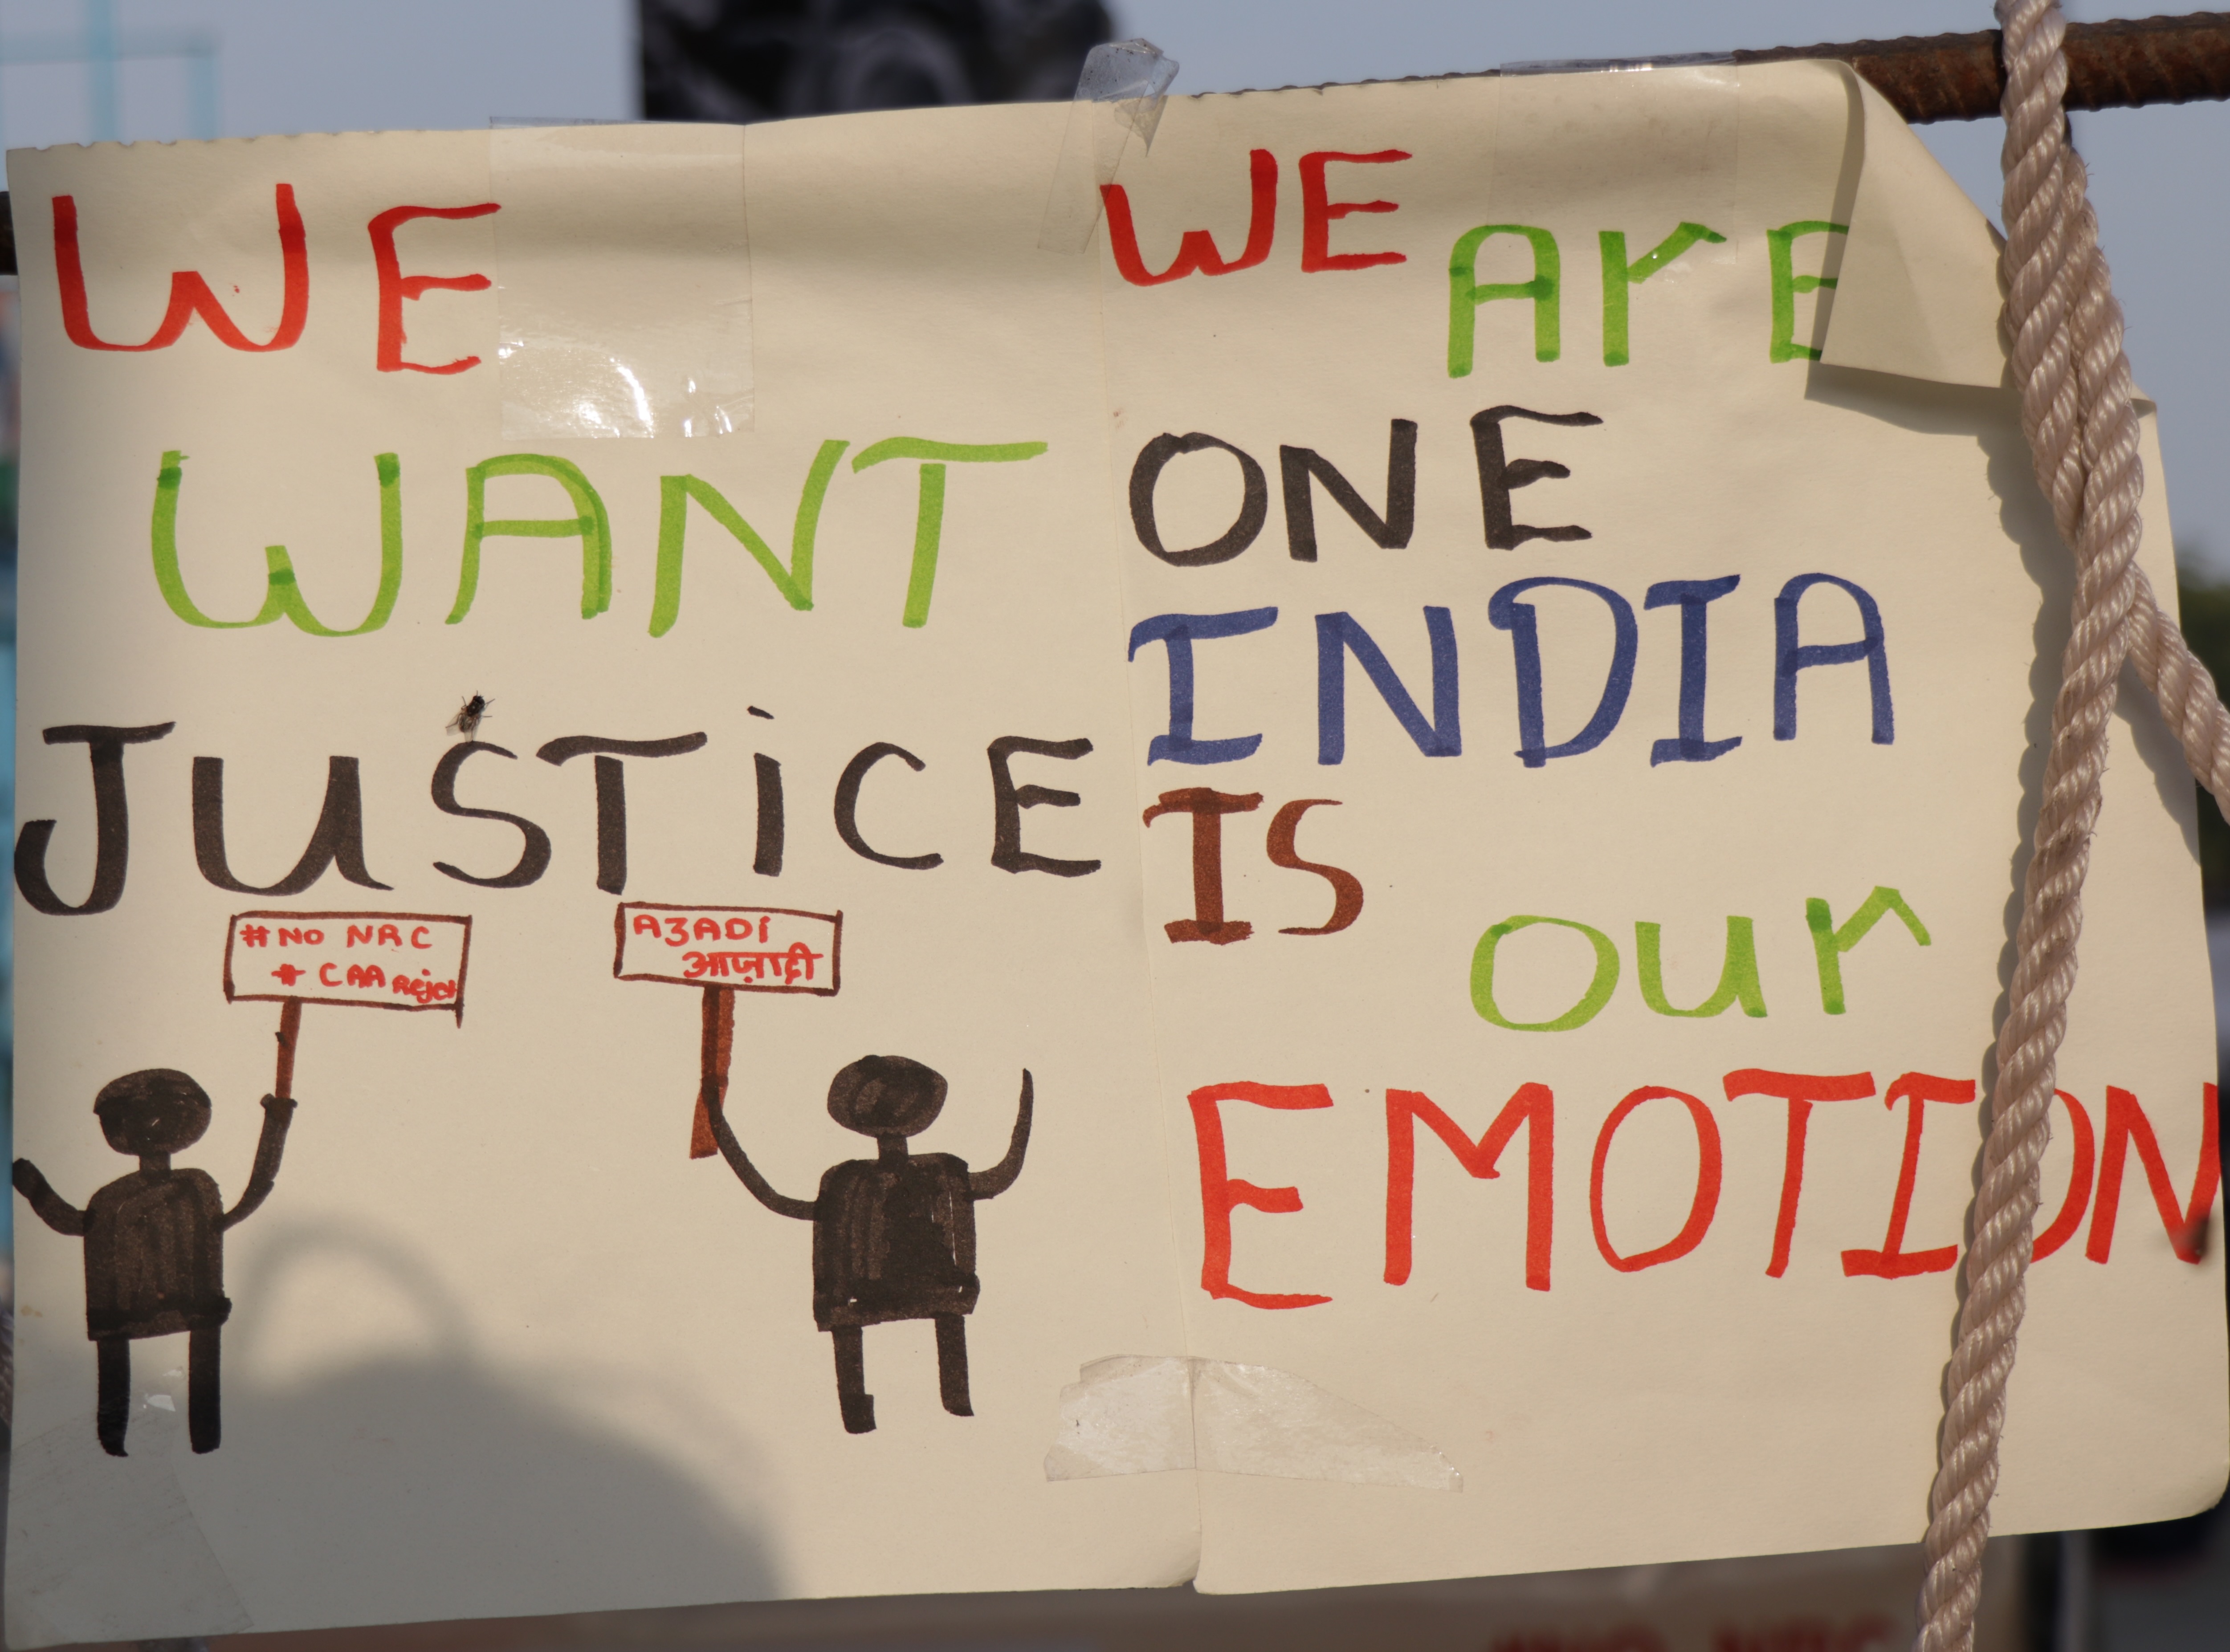 WE
WANT
JUSTiCE
#NO NRC
# CAA Reject
A3ADi
आज़ादी
WE ArE
ONE
INDIA
IS
our
EMOTION